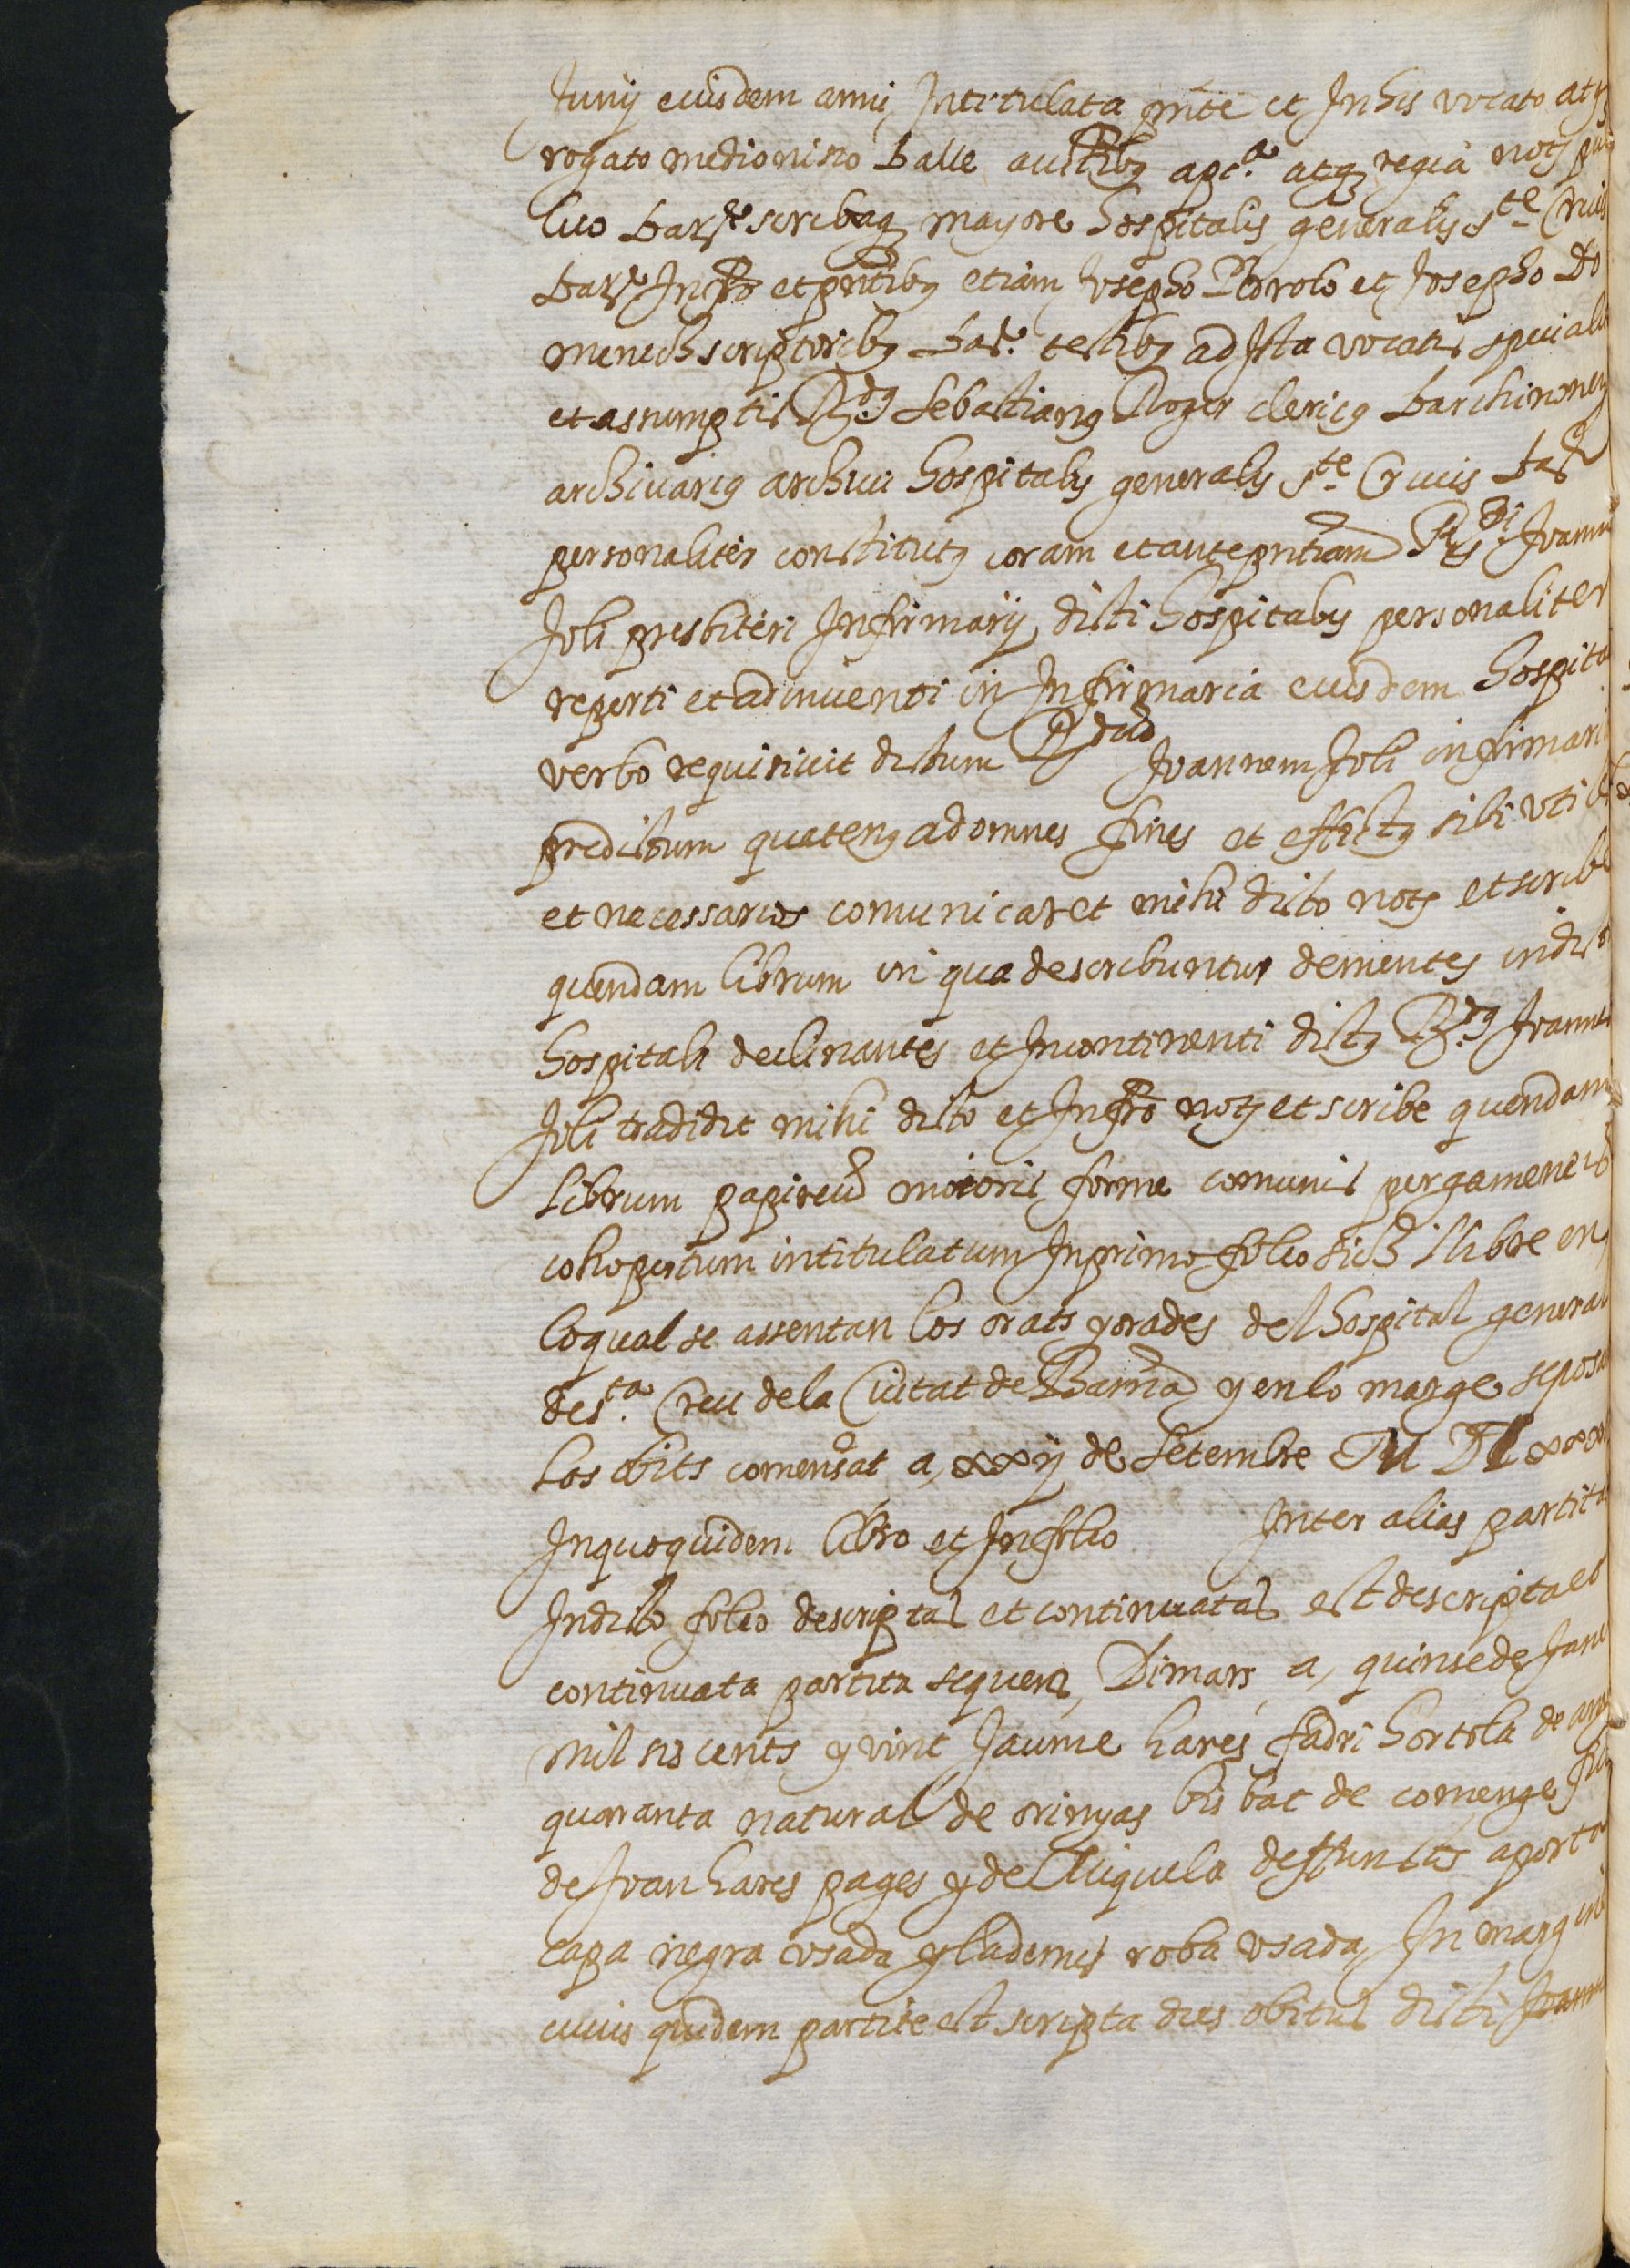 Junij eiusdem anni Intitulata pnte et In his vocato atq
rogato me dionisio Balle auctibq apca atq regia noty pu
lico Barne scribaq mayore hospitalis generalis Ste Crucis
Barne Infro et pntibq etiam Josepho et Josepho Do
menech scriptoribq Bar. testibq ad Ista vocatis speciali
et assumptis Rdq Sebastianq Roger clericq Barchinoney
archivariq archivi hospitalis generalis Ste Crucis Bar
personaliter constitutq coram et ante pntiam Rdi Joannis
Joli presbiteri Infirmarij dicti hospitalis personaliter
reperti et adinventi in Infirmaria eiusdem hospita
verbo requisivit dictum Rdum Joannem Joli infirmari
predictum quatenq ad omnes fines et effectq sibi utile
et necessarios comunicaret mihi dicto noty et scribe
quendam librum in qua describuntur dementes in dicto
hospitali declinantes et Incontinenti dictq Rdq Joannes
Joli tradidit mihi dicto et Infro noty et scribe quendam
Librum papireum maioris forme comunis pergameneis
cohopertum intitulatum In primo folio sich llibre en
lo qual se assentan los orats y orades del hospital general
de Sta Creu de la Ciutat de Barna y en lo marge se posan
Los obits comensat a xxij de Setembre M DL xxxx
In quo quidem libro et In folio Inter alias partitas
In dicto folio descriptas et continuatas est descripta et
continuata partita sequens Dimars a quinse de Janer
mil siscents y vint Jaume hares fadri hortola de any
quaranta natural de orinyas bisbat de comenge fill
de Joan hares pages y de Miquela deffuncts aporta
capa negra usada y lademes roba usada In margine
cuius quidem partite est scripta dies obitus dicti